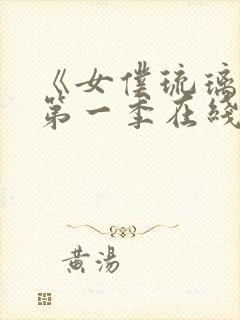 《女僕琉璃
第一季在綫
黄湯